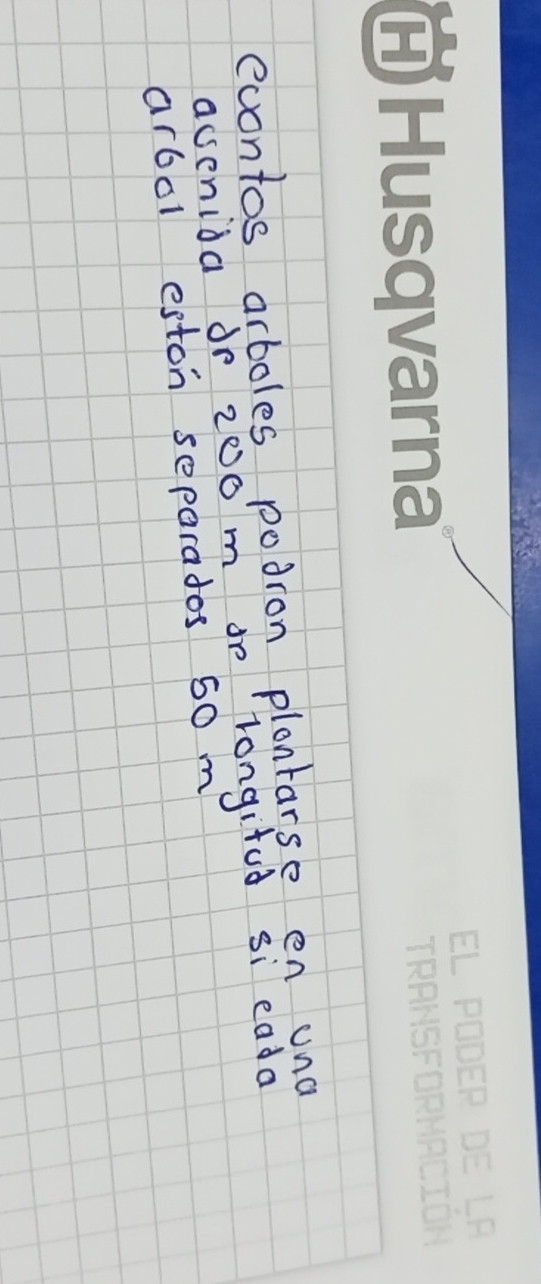 Husqvarna®
EL PODER DE LA
TRANSFORMACIÓN
cuantos arboles podran plantarse en una
avenida de 200 m de longitud si cada
arbol están separados 50 m